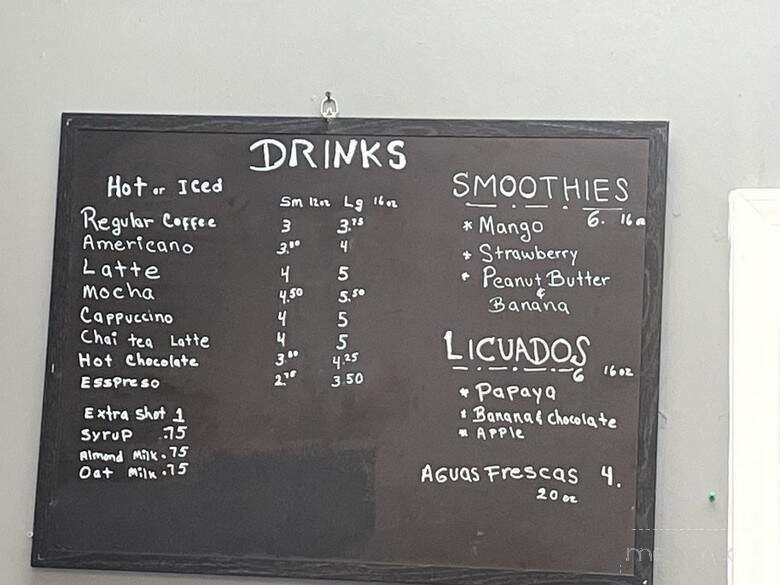 DRINKS
Hot or Iced
Sm 12oz Lg 16oz
Regular Coffee 3 3.75
Americano 3.00 4
Latte 4 5
Mocha 4.50 5.50
Cappuccino 4 5
Chai tea Latte 4 5
Hot Chocolate 3.00 4.25
Esspreso 2.75 3.50
Extra Shot 1
Syrup .75
Almond Milk .75
Oat Milk .75
SMOOTHIES
6. 16oz
* Mango
* Strawberry
* Peanut Butter
&
Banana
LICUADOS
6 16oz
* Papaya
* Banana & Chocolate
* Apple
Aguas Frescas 4.
20 oz